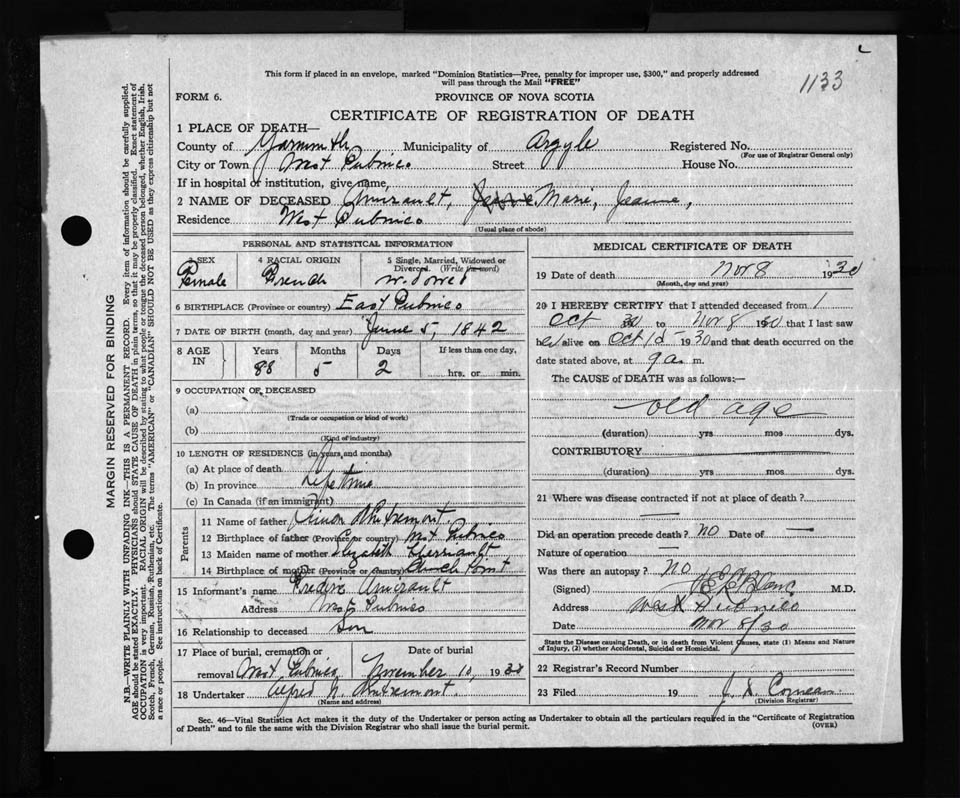 This form if placed in an envelope, marked "Dominion Statistics—Free, penalty for improper use, $300," and properly addressed
will pass through the Mail "FREE"
1133
FORM 6.
PROVINCE OF NOVA SCOTIA
CERTIFICATE OF REGISTRATION OF DEATH
1 PLACE OF DEATH—
County of Yarmouth Municipality of Argyle Registered No.
(For use of Registrar General only)
City or Town West Pubnico Street House No.
If in hospital or institution, give name,
2 NAME OF DECEASED Amirault, Marie, Jeanne,
Residence West Pubnico
(Usual place of abode)
PERSONAL AND STATISTICAL INFORMATION
3 SEX 4 RACIAL ORIGIN 5 Single, Married, Widowed or
Divorced. (Write the word)
Female French Widowed
6 BIRTHPLACE (Province or country) East Pubnico
7 DATE OF BIRTH (month, day and year) June 5, 1842
8 AGE IN Years Months Days If less than one day,
88 5 2 hrs. or min.
9 OCCUPATION OF DECEASED
(a)
(Trade or occupation or kind of work)
(b)
(Kind of industry)
10 LENGTH OF RESIDENCE (in years, and months)
(a) At place of death
(b) In province Life time
(c) In Canada (if an immigrant)
Parents
11 Name of father Simon d'Entremont
12 Birthplace of father (Province or country) West Pubnico
13 Maiden name of mother Elizabeth Therriault
14 Birthplace of mother (Province or country) Church Point
15 Informant's name Amirault
Address West Pubnico
16 Relationship to deceased Son
17 Place of burial, cremation or removal Date of burial
West Pubnico November 10, 1930
18 Undertaker Alfred N. d'Entremont
(Name and address)
MEDICAL CERTIFICATE OF DEATH
19 Date of death Nov 8 1930
(Month, day and year)
20 I HEREBY CERTIFY that I attended deceased from 1
Oct 30 to Nov 8 1930 that I last saw
her alive on Oct 15 1930 and that death occurred on the
date stated above, at 9 a. m.
The CAUSE of DEATH was as follows:—
old age
(duration) yrs mos dys.
CONTRIBUTORY
(duration) yrs mos dys.
21 Where was disease contracted if not at place of death?
Did an operation precede death? no Date of —
Nature of operation —
Was there an autopsy? no
(Signed) LeBlanc M.D.
Address West Pubnico
Date Nov 8/30
State the Disease causing Death, or in death from Violent Causes, state (1) Means and Nature
of Injury, (2) whether Accidental, Suicidal or Homicidal.
22 Registrar's Record Number
23 Filed 19
(Division Registrar)
Sec. 46—Vital Statistics Act makes it the duty of the Undertaker or person acting as Undertaker to obtain all the particulars required in the "Certificate of Registration
of Death" and to file the same with the Division Registrar who shall issue the burial permit.
(OVER)
MARGIN RESERVED FOR BINDING
N.B.—WRITE PLAINLY WITH UNFADING INK—THIS IS A PERMANENT RECORD. Every item of information should be carefully supplied.
AGE should be stated EXACTLY. PHYSICIANS should STATE CAUSE OF DEATH in plain terms, so that it may be properly classified. Exact statement of
OCCUPATION is very important. RACIAL ORIGIN will be described by stating to what people or tongue the deceased person belonged, whether English, Irish,
Scotch, French, German, Russian, Ruthenian, etc. The terms "AMERICAN" or "CANADIAN" SHOULD NOT BE USED as they express citizenship but not
a race or people. See instructions on back of Certificate.